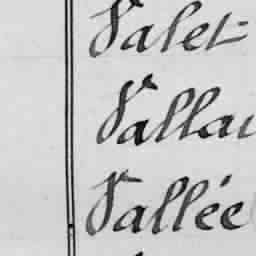 Valet
Valla
Vallée